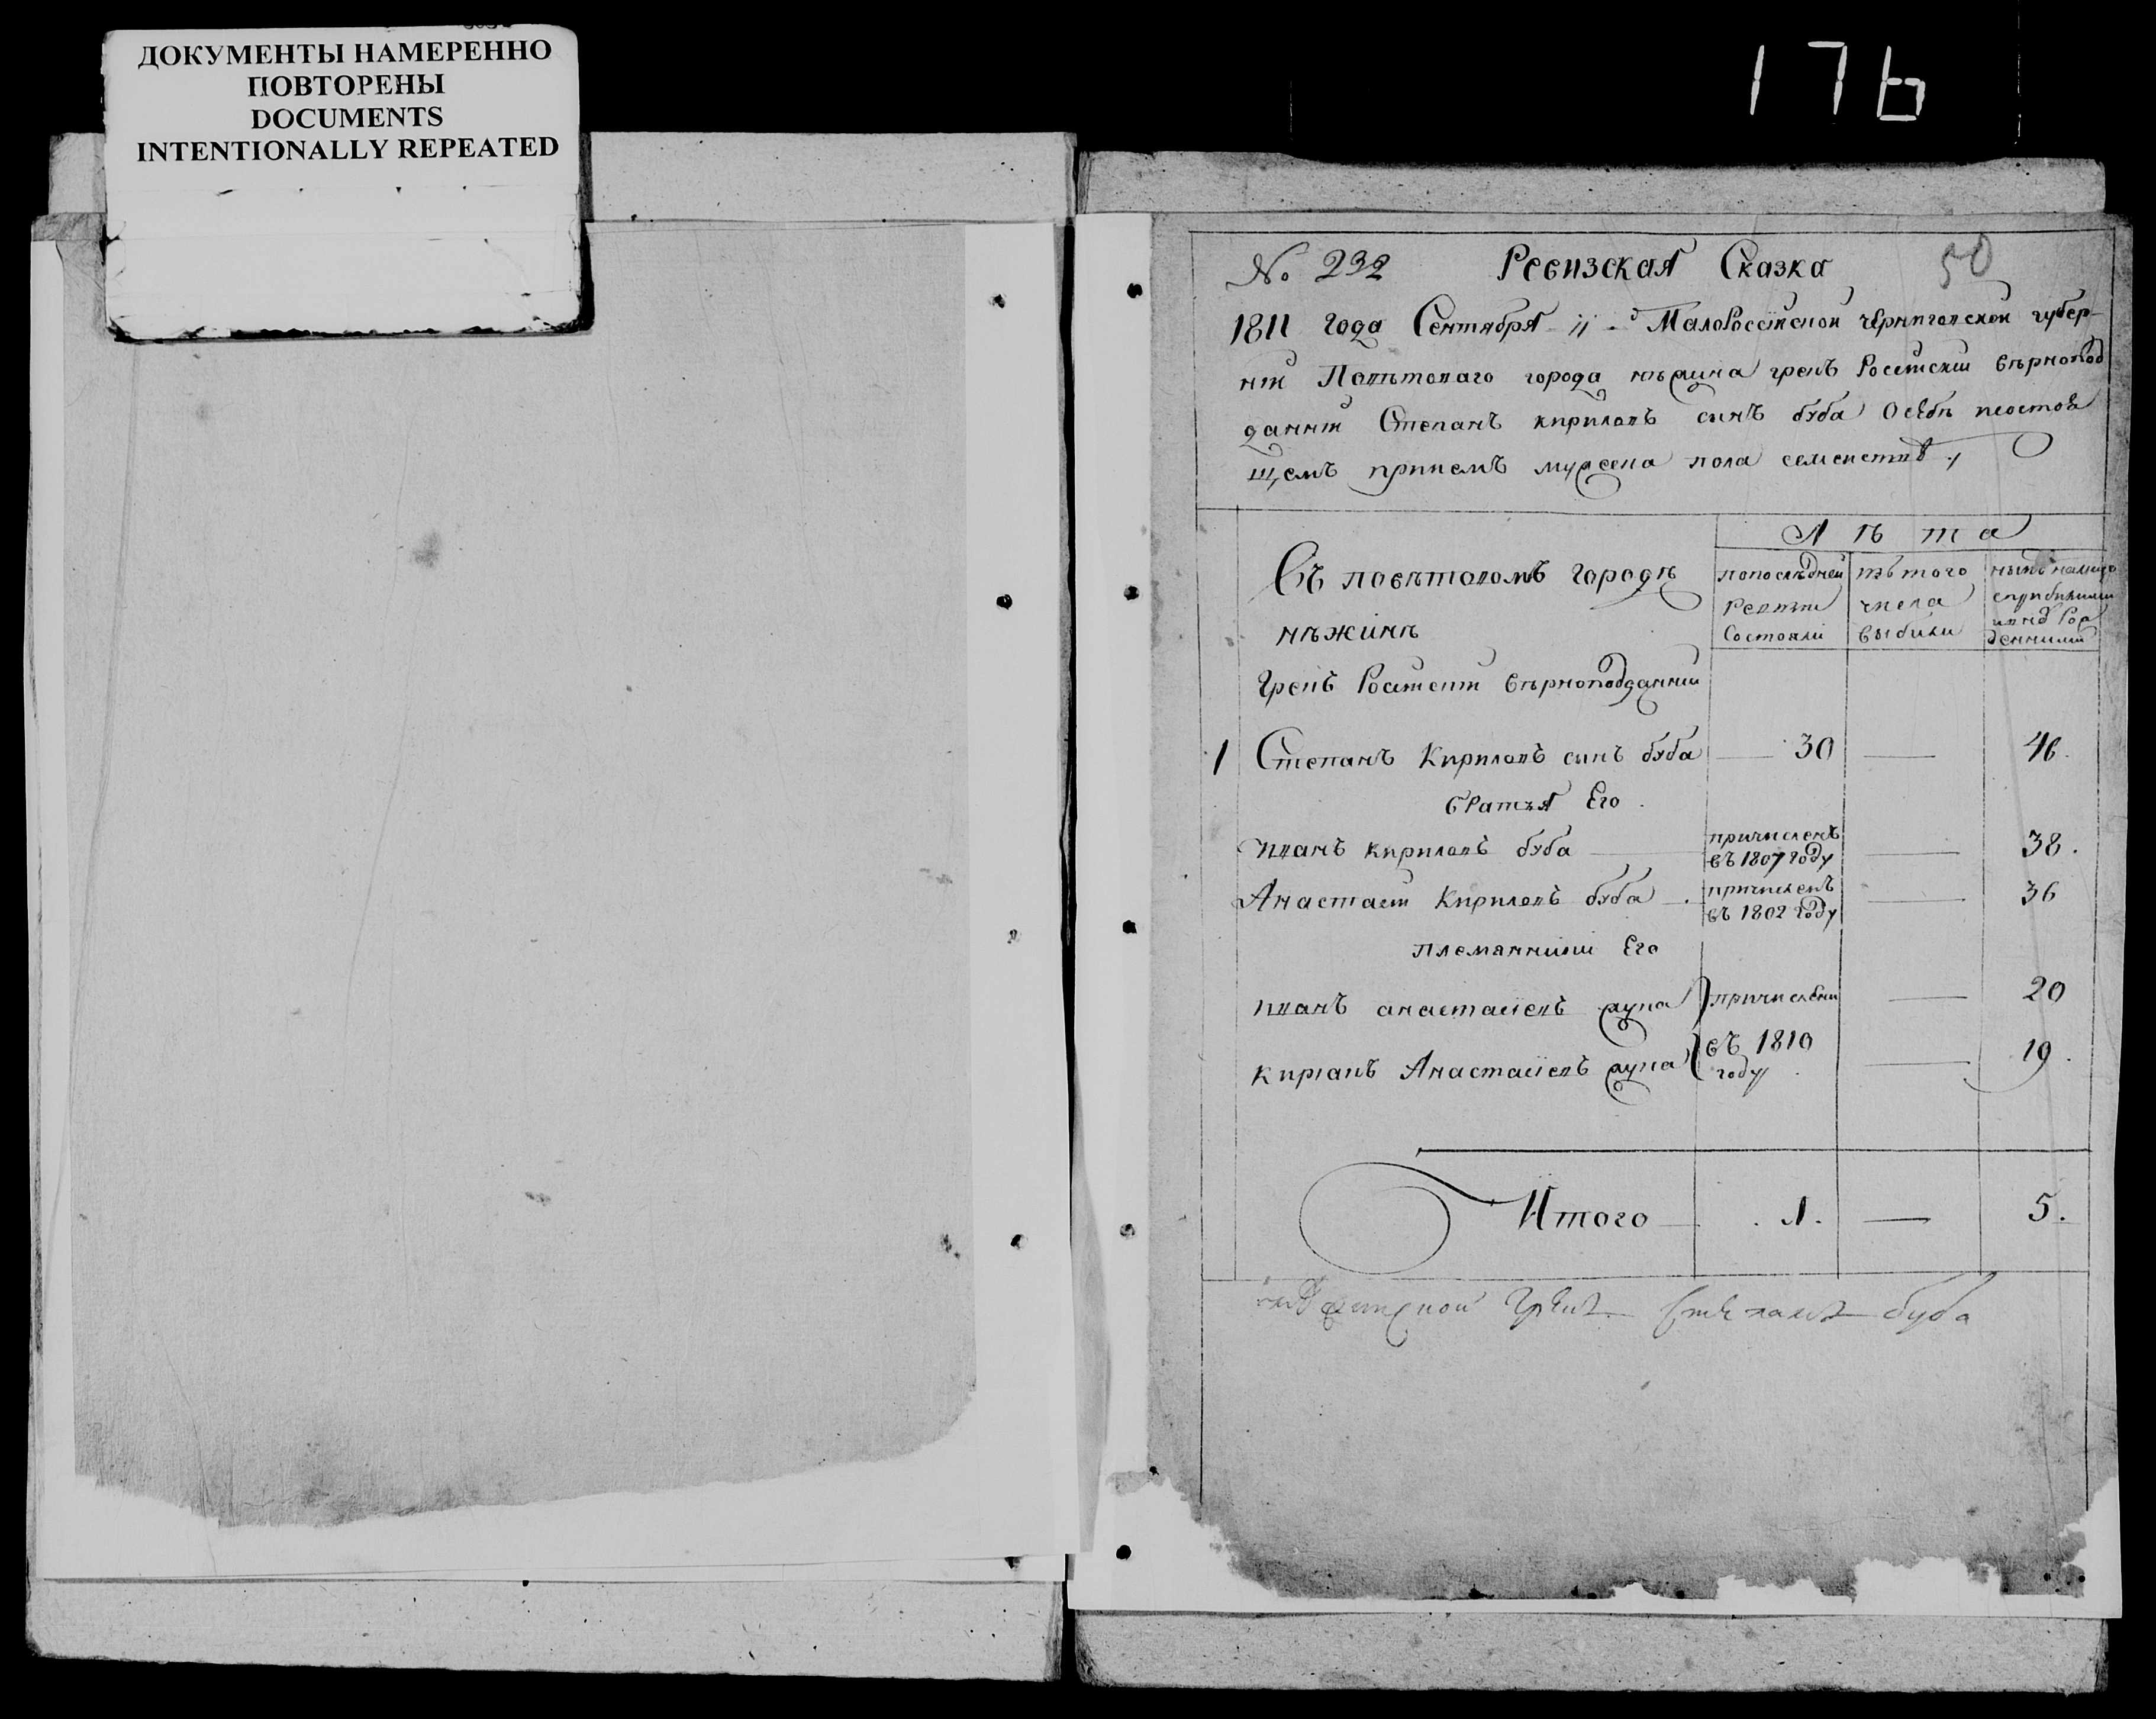 ДОКУМЕНТЫ НАМЕРЕННО
ПОВТОРЕНЫ
DOCUMENTS
INTENTIONALLY REPEATED
176
№ 232 Ревизская Сказка 50
1811 года Сентября 11 Малоросійской черниговской губер-
ніи Повѣтоваго города нѣжина грекъ Російскій вѣрнопод
данній Степанъ кириловъ синъ буба О себѣ и состоя
щемъ при немъ мужеска пола семействѣ
Лѣта
Въ повѣтовомъ городѣ
нѣжинѣ
по последней
Ревизіи
Состояли
изъ того
числа
выбили
нынѣ налицо
Грекъ Російскій вѣрноподданній
1 Степанъ Кириловъ синъ буба 30 — 46.
братья Его.
иванъ кириловъ буба причисленъ въ 1807 году — 38.
Анастасій Кириловъ буба причисленъ въ 1802 году — 36
племянники Его
иванъ анастасіевъ причислени — 20
киріакъ Анастасіевъ въ 1810 году — 19.
Итого 1. — 5.
Грекъ Степанъ буба